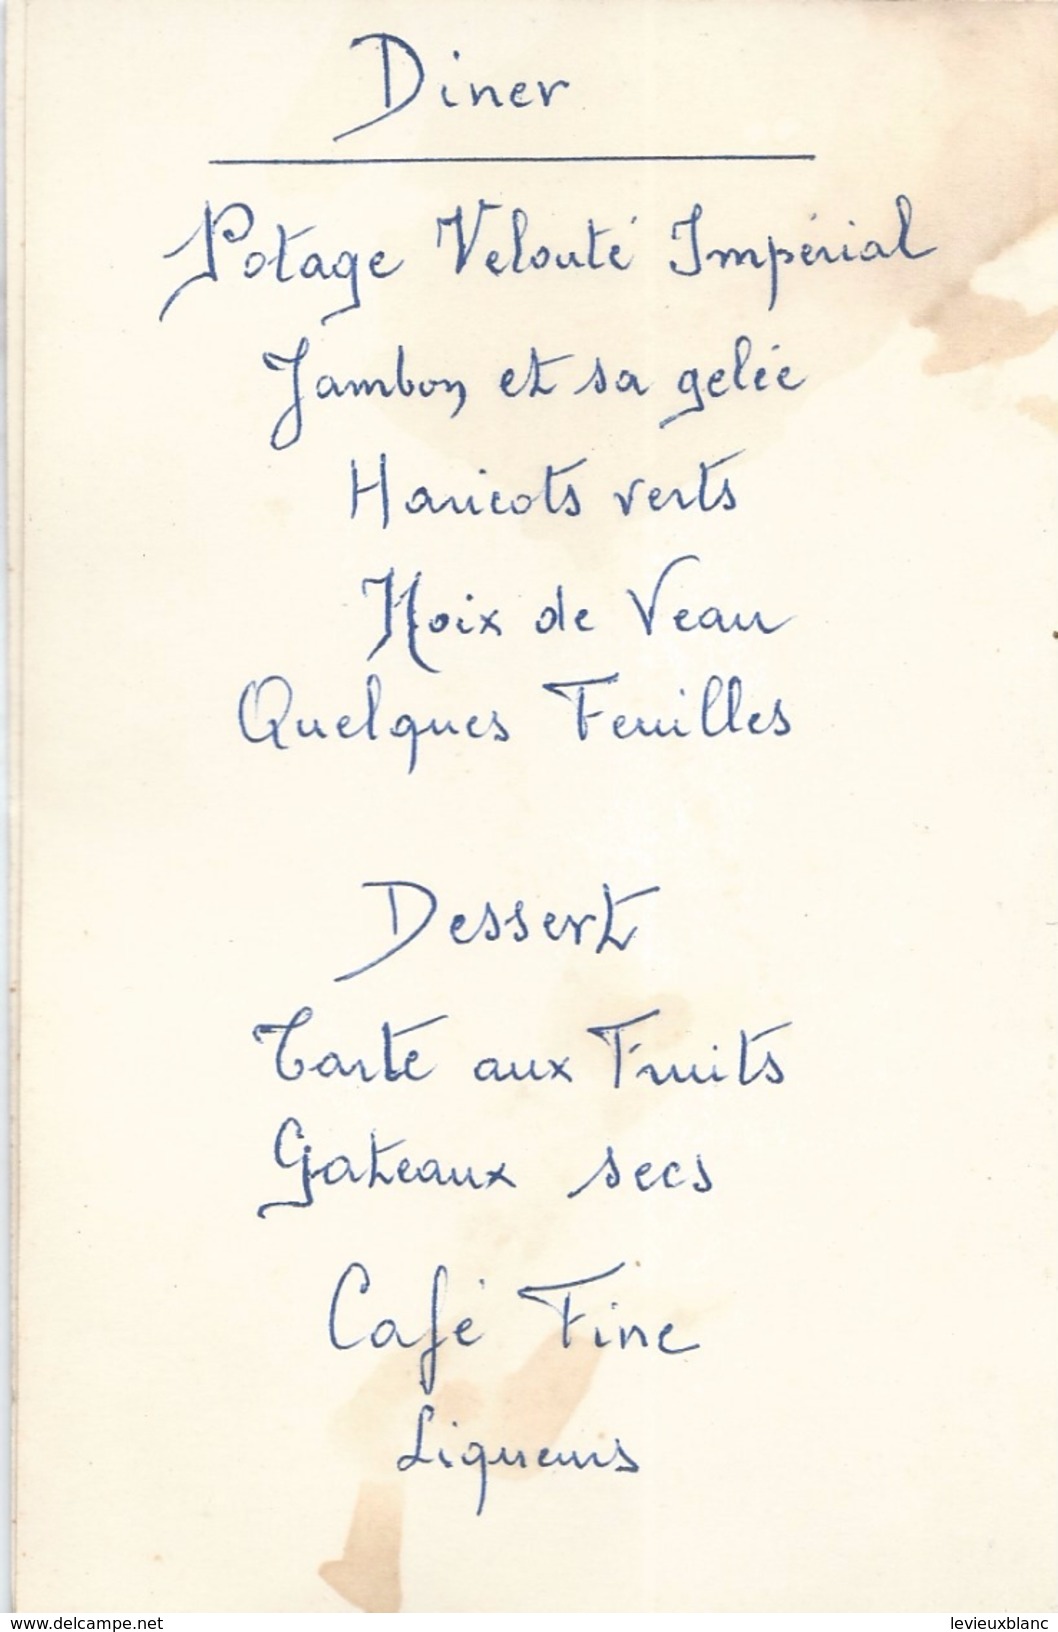 Diner
Potage Velouté Impérial
Jambon et sa gelée
Haricots verts
Noix de Veau
Quelques Feuilles
Dessert
Tarte aux Fruits
Gateaux secs
Café Fine
Liqueurs
www.delcampe.net
levieuxblanc